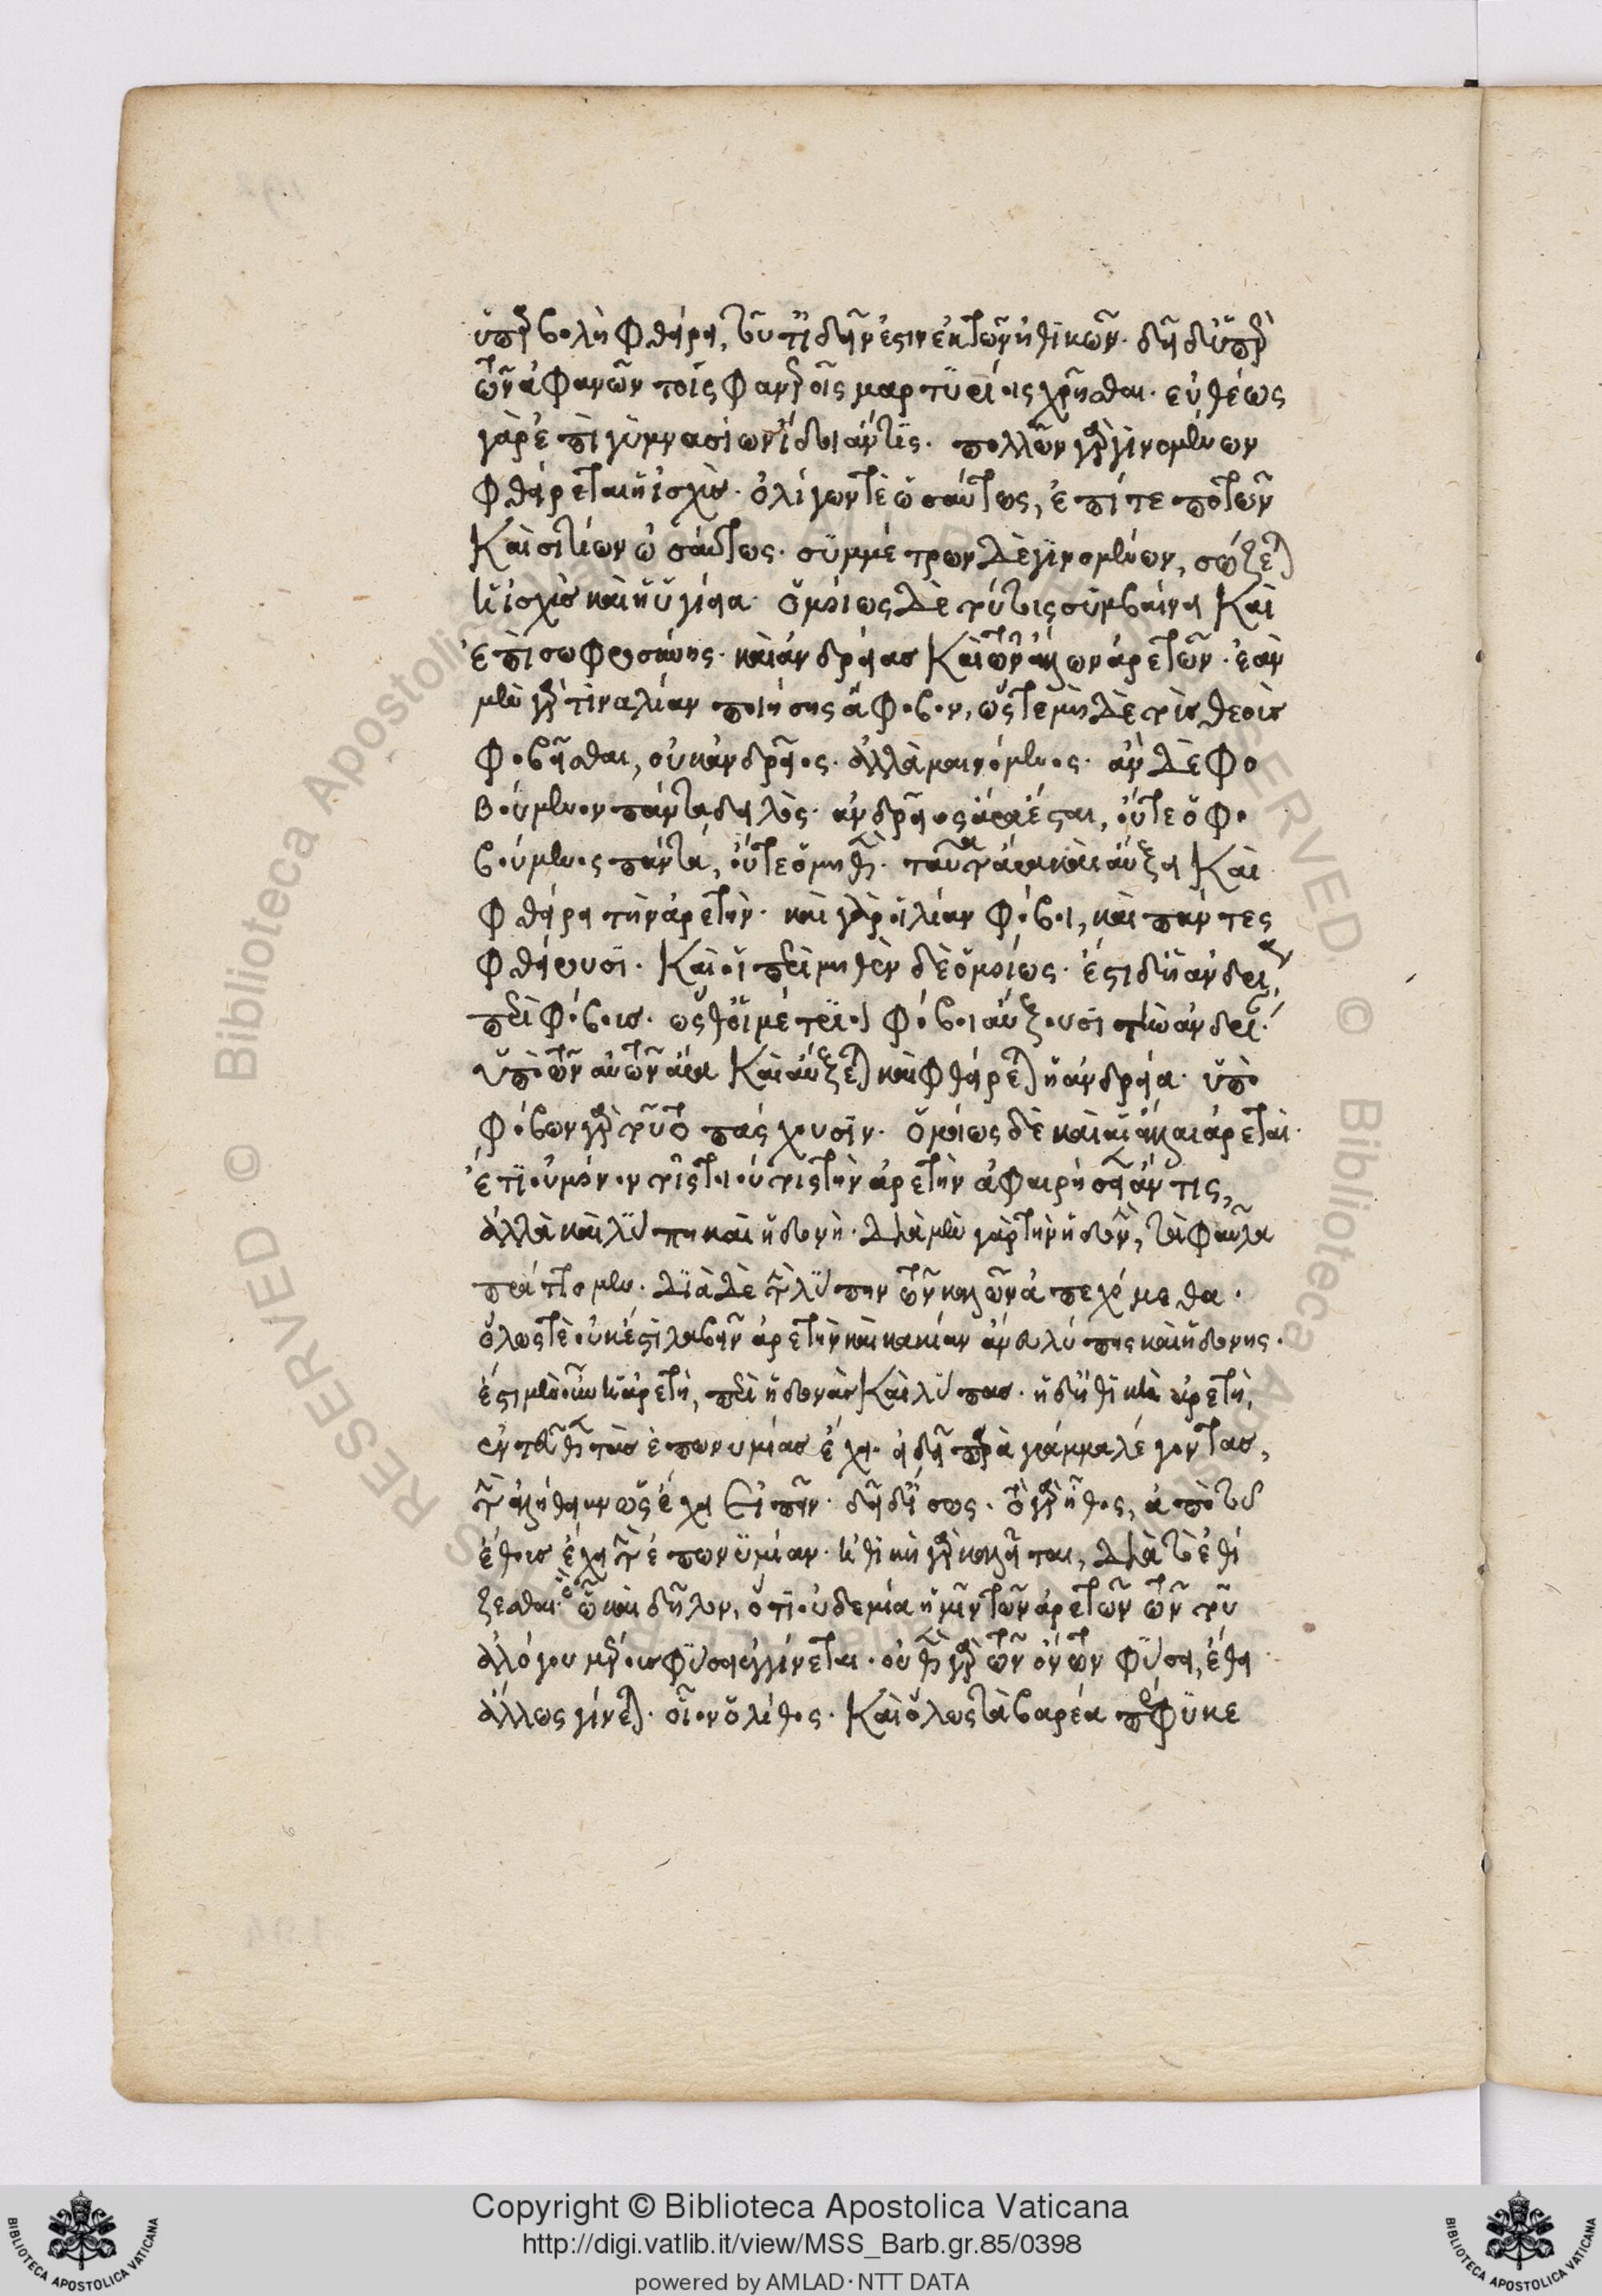 ὑπερβολὴ φθείρει, τοῦτ' ἰδεῖν ἔστιν ἐκ τῶν ἠθικῶν. δεῖ δ' ὑπὲρ
τῶν ἀφανῶν τοῖς φανεροῖς μαρτυρίοις χρῆσθαι. εὐθέως
γὰρ ἐπὶ γυμνασίων ἴδοι ἄν τις. πολλῶν γὰρ γινομένων
φθείρεται ἡ ἰσχὺς. ὀλίγων τὲ ὡσαύτως, ἐπί τε ποτῶν
καὶ σιτίων ὡσαύτως. συμμέτρων δὲ γινομένων, σώζεται
ἡ ἰσχὺς καὶ ἡ ὑγίεια. ὁμοίως δὲ τούτοις συμβαίνει καὶ
ἐπὶ σωφροσύνης. καὶ ἀνδρείας καὶ τῶν ἄλλων ἀρετῶν. ἐὰν
μὲν γάρ τινα λίαν ποιήσης ἄφοβον, ὥστε μὴ δὲ τοὺς θεοὺς
φοβεῖσθαι, οὐκ ἀνδρεῖος. ἀλλὰ μαινόμενος. ἂν δὲ φο
βούμενον πάντα δειλός. ἀνδρεῖος ἄρα ἔσται, οὔτε ὁ φο
βούμενος πάντα, οὔτε ὁ μηθὲν. ταῦτα ἄρα καὶ αὔξει καὶ
φθείρει τὴν ἀρετὴν. καὶ γὰρ οἱ λίαν φόβοι, καὶ πάντες
φθείρουσι. καὶ οἱ περὶ μηθὲν δὲ ὁμοίως. ἔστι δ' ἡ ἀνδρεία
περὶ φόβους. ὥσθ' οἱ μέτριοι φόβοι αὔξουσι τὴν ἀνδρείαν.
ὑπὸ τῶν αὐτῶν ἄρα καὶ αὔξεται καὶ φθείρεται ἡ ἀνδρεία. ὑπὸ
φόβων γὰρ τοῦτο πάσχουσιν. ὁμοίως δὲ καὶ αἱ ἄλλαι ἀρεταὶ.
ἔτι οὐ μόνον τοῖς τοιούτοις τὴν ἀρετὴν ἀφαιρήσειεν ἄν τις,
ἀλλὰ καὶ λύπη καὶ ἡδονὴ. διὰ μὲν γὰρ τὴν ἡδονὴν, τὰ φαῦλα
πράττομεν. διὰ δὲ τὴν λύπην τῶν καλῶν ἀπεχόμεθα.
ὅλως τὲ οὐκ ἔστι λαβεῖν ἀρετὴν καὶ κακίαν ἄνευ λύπης καὶ ἡδονης.
ἔστι μὲν οὖν ἡ ἀρετὴ, περὶ ἡδονὰς καὶ λύπας. ἡ δ' ἠθικὴ ἀρετὴ,
ἐντεῦθεν τὰς ἐπωνυμίας ἔχει. εἰ δεῖ παρὰ γράμμα λέγοντας,
τὴν ἀλήθειαν ὡς ἔχει εἰπεῖν. δεῖ δ' ἴσως. τὸ γὰρ ἦθος, ἀπὸ τοῦ
ἔθους ἔχει τὴν ἐπωνυμίαν. ἠθικὴ γὰρ καλεῖται, διὰ τὸ ἐθί
ζεσθαι. ὧ καὶ δῆλον, ὅτι οὐδεμία ἡμῖν τῶν ἀρετῶν τῶν τοῦ
ἀλόγου μέρους φύσει ἐγγίνεται. οὐθὲν γὰρ τῶν ὄντων φύσει, ἔθει
ἄλλως γίνεται. οἷον ὁ λίθος. καὶ ὅλως τὰ βαρέα πέφυκε